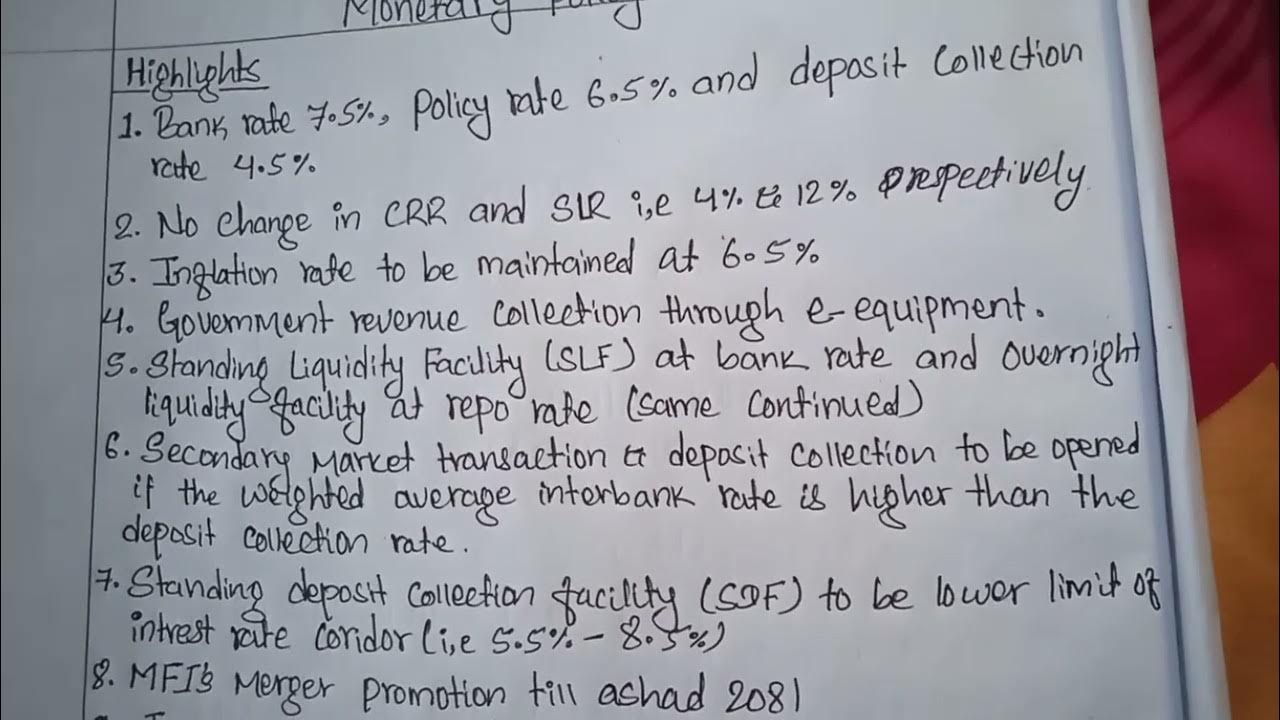 Monetary Policy
Highlights
1. Bank rate 7.5%, Policy rate 6.5% and deposit collection
rate 4.5%
2. No change in CRR and SLR i,e 4% & 12% respectively
3. Inflation rate to be maintained at 6.5%
4. Government revenue collection through e-equipment.
5. Standing Liquidity Facility (SLF) at bank rate and overnight
liquidity facility at repo rate (same continued)
6. Secondary Market transaction & deposit collection to be opened
if the weighted average interbank rate is higher than the
deposit collection rate.
7. Standing deposit collection facility (SDF) to be lower limit of
intrest rate coridor (i,e 5.5% - 8.5%)
8. MFI's Merger promotion till ashad 2081